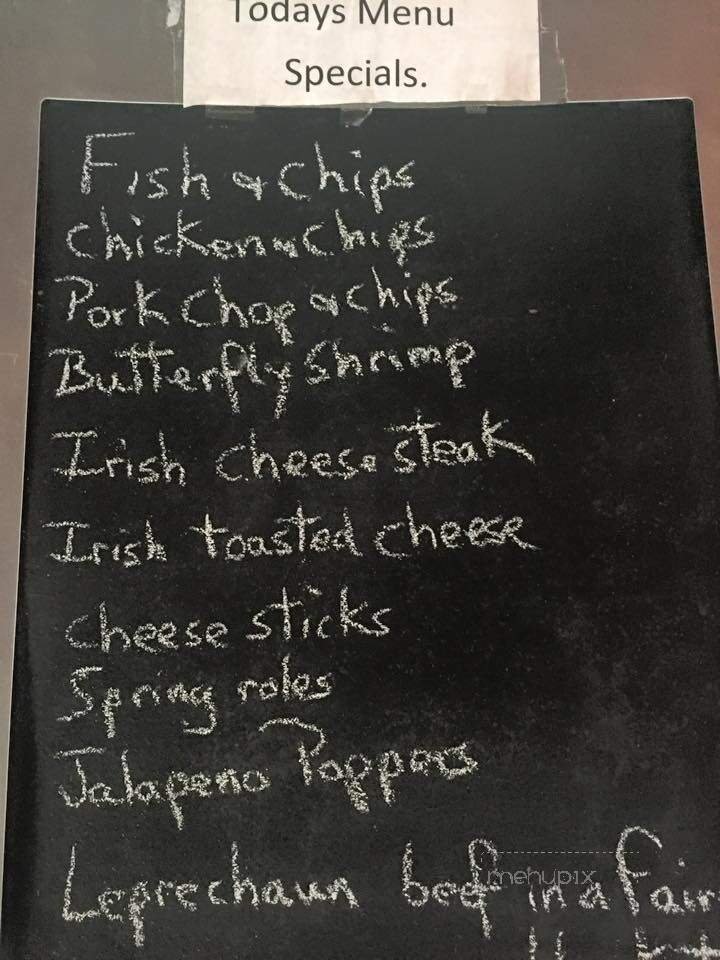 Todays Menu
Specials.
Fish & chips
Chicken & Chips
Pork Chop & chips
Butterfly Shrimp
Irish cheese steak
Irish toasted cheese
cheese sticks
Spring roles
Jalapeno Poppers
Leprechaun beef in a Fair
mehupix